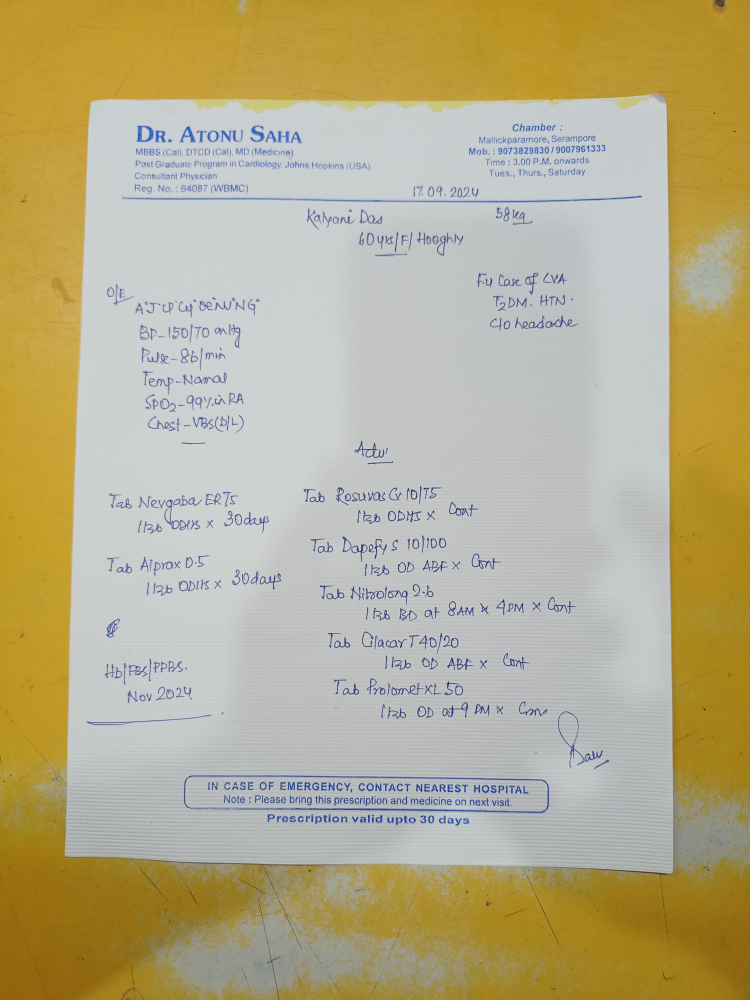 DR. ATONU SAHA
MBBS (Cal), DTCD (Cal), MD (Medicine)
Post Graduate Program in Cardiology, Johns Hopkins (USA)
Consultant Physician
Reg. No. : 64087 (WBMC)
Chamber :
Mallickparamore, Serampore
Mob. : 9073829830 / 9007961333
Time : 3.00 P.M. onwards
Tues., Thurs., Saturday
17.09.2024
Kalyani Das
58kg
60 yrs/F/Hooghly
F/U Case of CVA
T2DM. HTN.
C/o headache
O/E
A°J°
BP-150/70 mmHg
Pulse-86/min
Temp-Normal
SPO2-99% in RA
Chest-VBS(B/L)
Adv
Tab Nevgaba ER75
1 tab ODHS x 30days
Tab Alprax 0.5
1 tab ODHS x 30days
Hb/FBS/PPBS.
Nov 2024.
Tab Rosuvas CV 10/75
1 tab ODHS x Cont
Tab Dapefy S 10/100
1 tab OD ABF x Cont
Tab Nitrolong 2.6
1 tab BD at 8AM x 4PM x Cont
Tab Cilacar T 40/20
1 tab OD ABF x Cont
Tab Prolomet XL 50
1 tab OD at 9 PM x Cont
IN CASE OF EMERGENCY, CONTACT NEAREST HOSPITAL
Note : Please bring this prescription and medicine on next visit.
Prescription valid upto 30 days